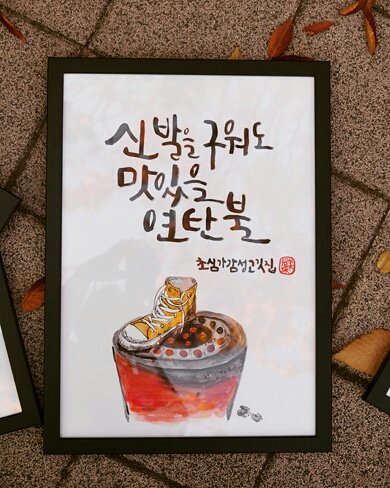 신발을 구워도
맛있을
연탄불
초심가감성고깃집